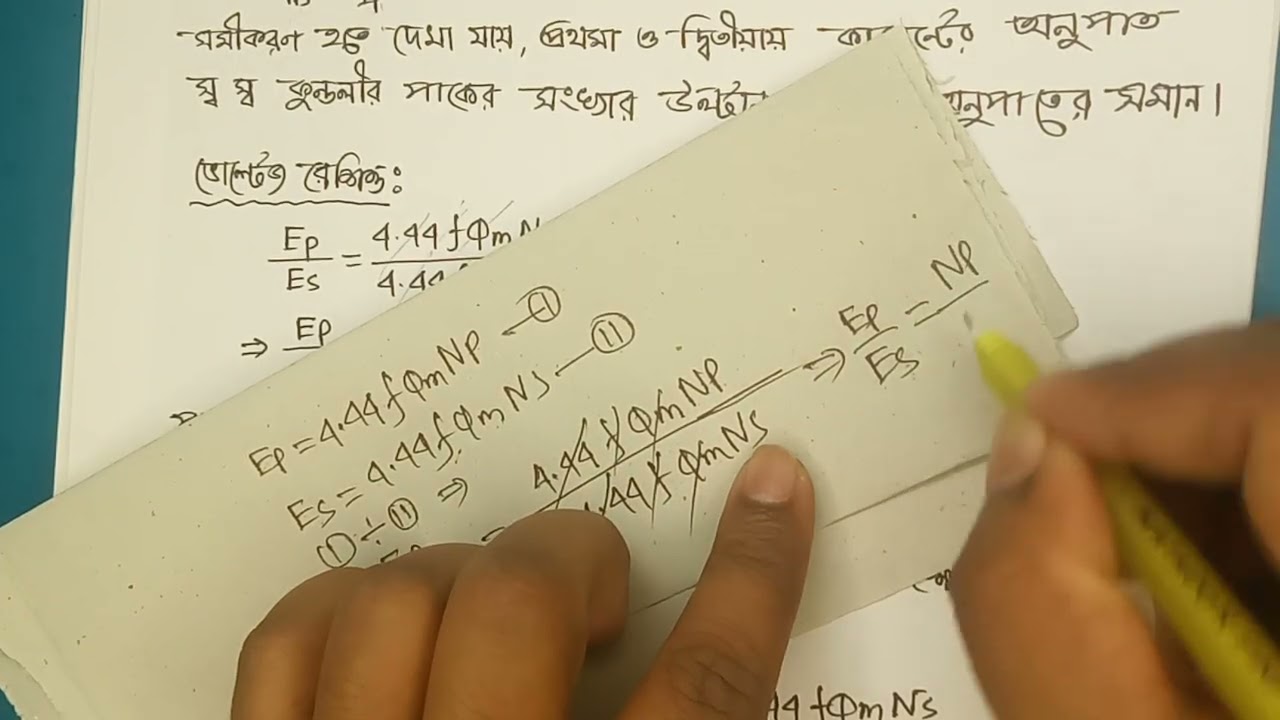 সমীকরণ হতে দেখা যায়, প্রথমা ও দ্বিতীয়ায় অনুপাত
স্ব স্ব কুন্ডলীর পাকের সংখ্যার অনুপাতের সমান।
ভোল্টেজ রেশিও:
Ep/Es = 4.44 fΦm
⇒ Ep
Ep = 4.44 fΦm Np — (I)
Es = 4.44 fΦm Ns — (II)
(I) ÷ (II) ⇒
4.44 f Φm Np / 4.44 f Φm Ns ⇒ Ep/Es = Np
fΦm Ns